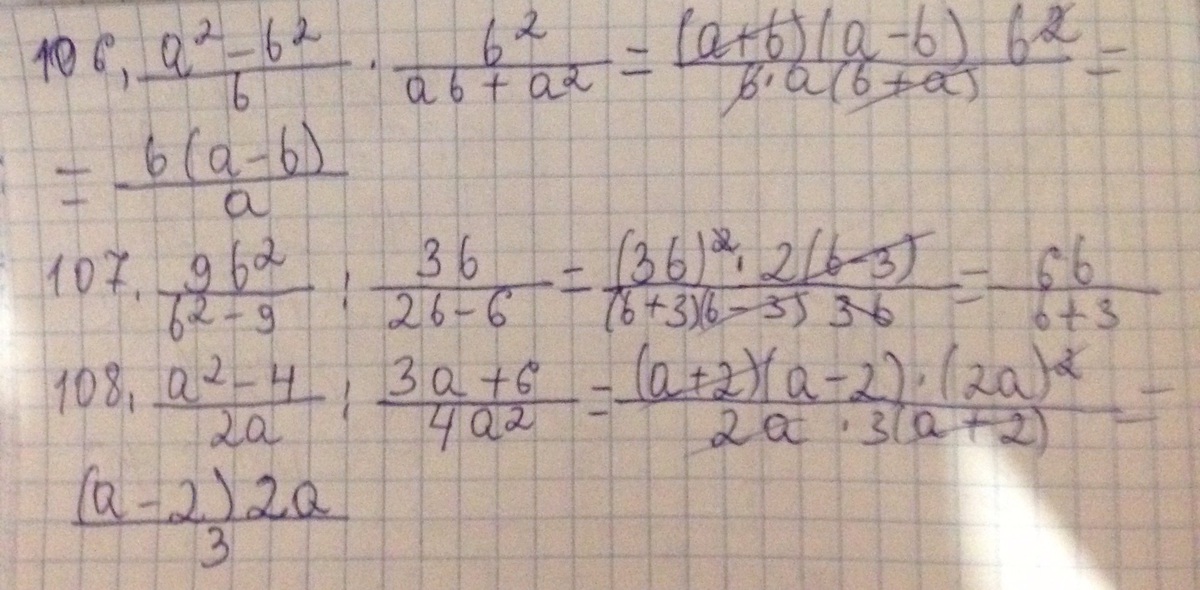 106. (a² - b²)/b · b²/(ab + a²) = ((a+b)(a-b) b²)/(b·a(b+a)) =
= b(a-b)/a
107. 9b²/(b²-9) : 3b/(2b-6) = ((3b)²·2(b-3))/((b+3)(b-3) 3b) = 6b/(b+3)
108. (a²-4)/2a : (3a+6)/4a² = ((a+2)(a-2)·(2a)²)/(2a·3(a+2)) =
(a-2)2a/3